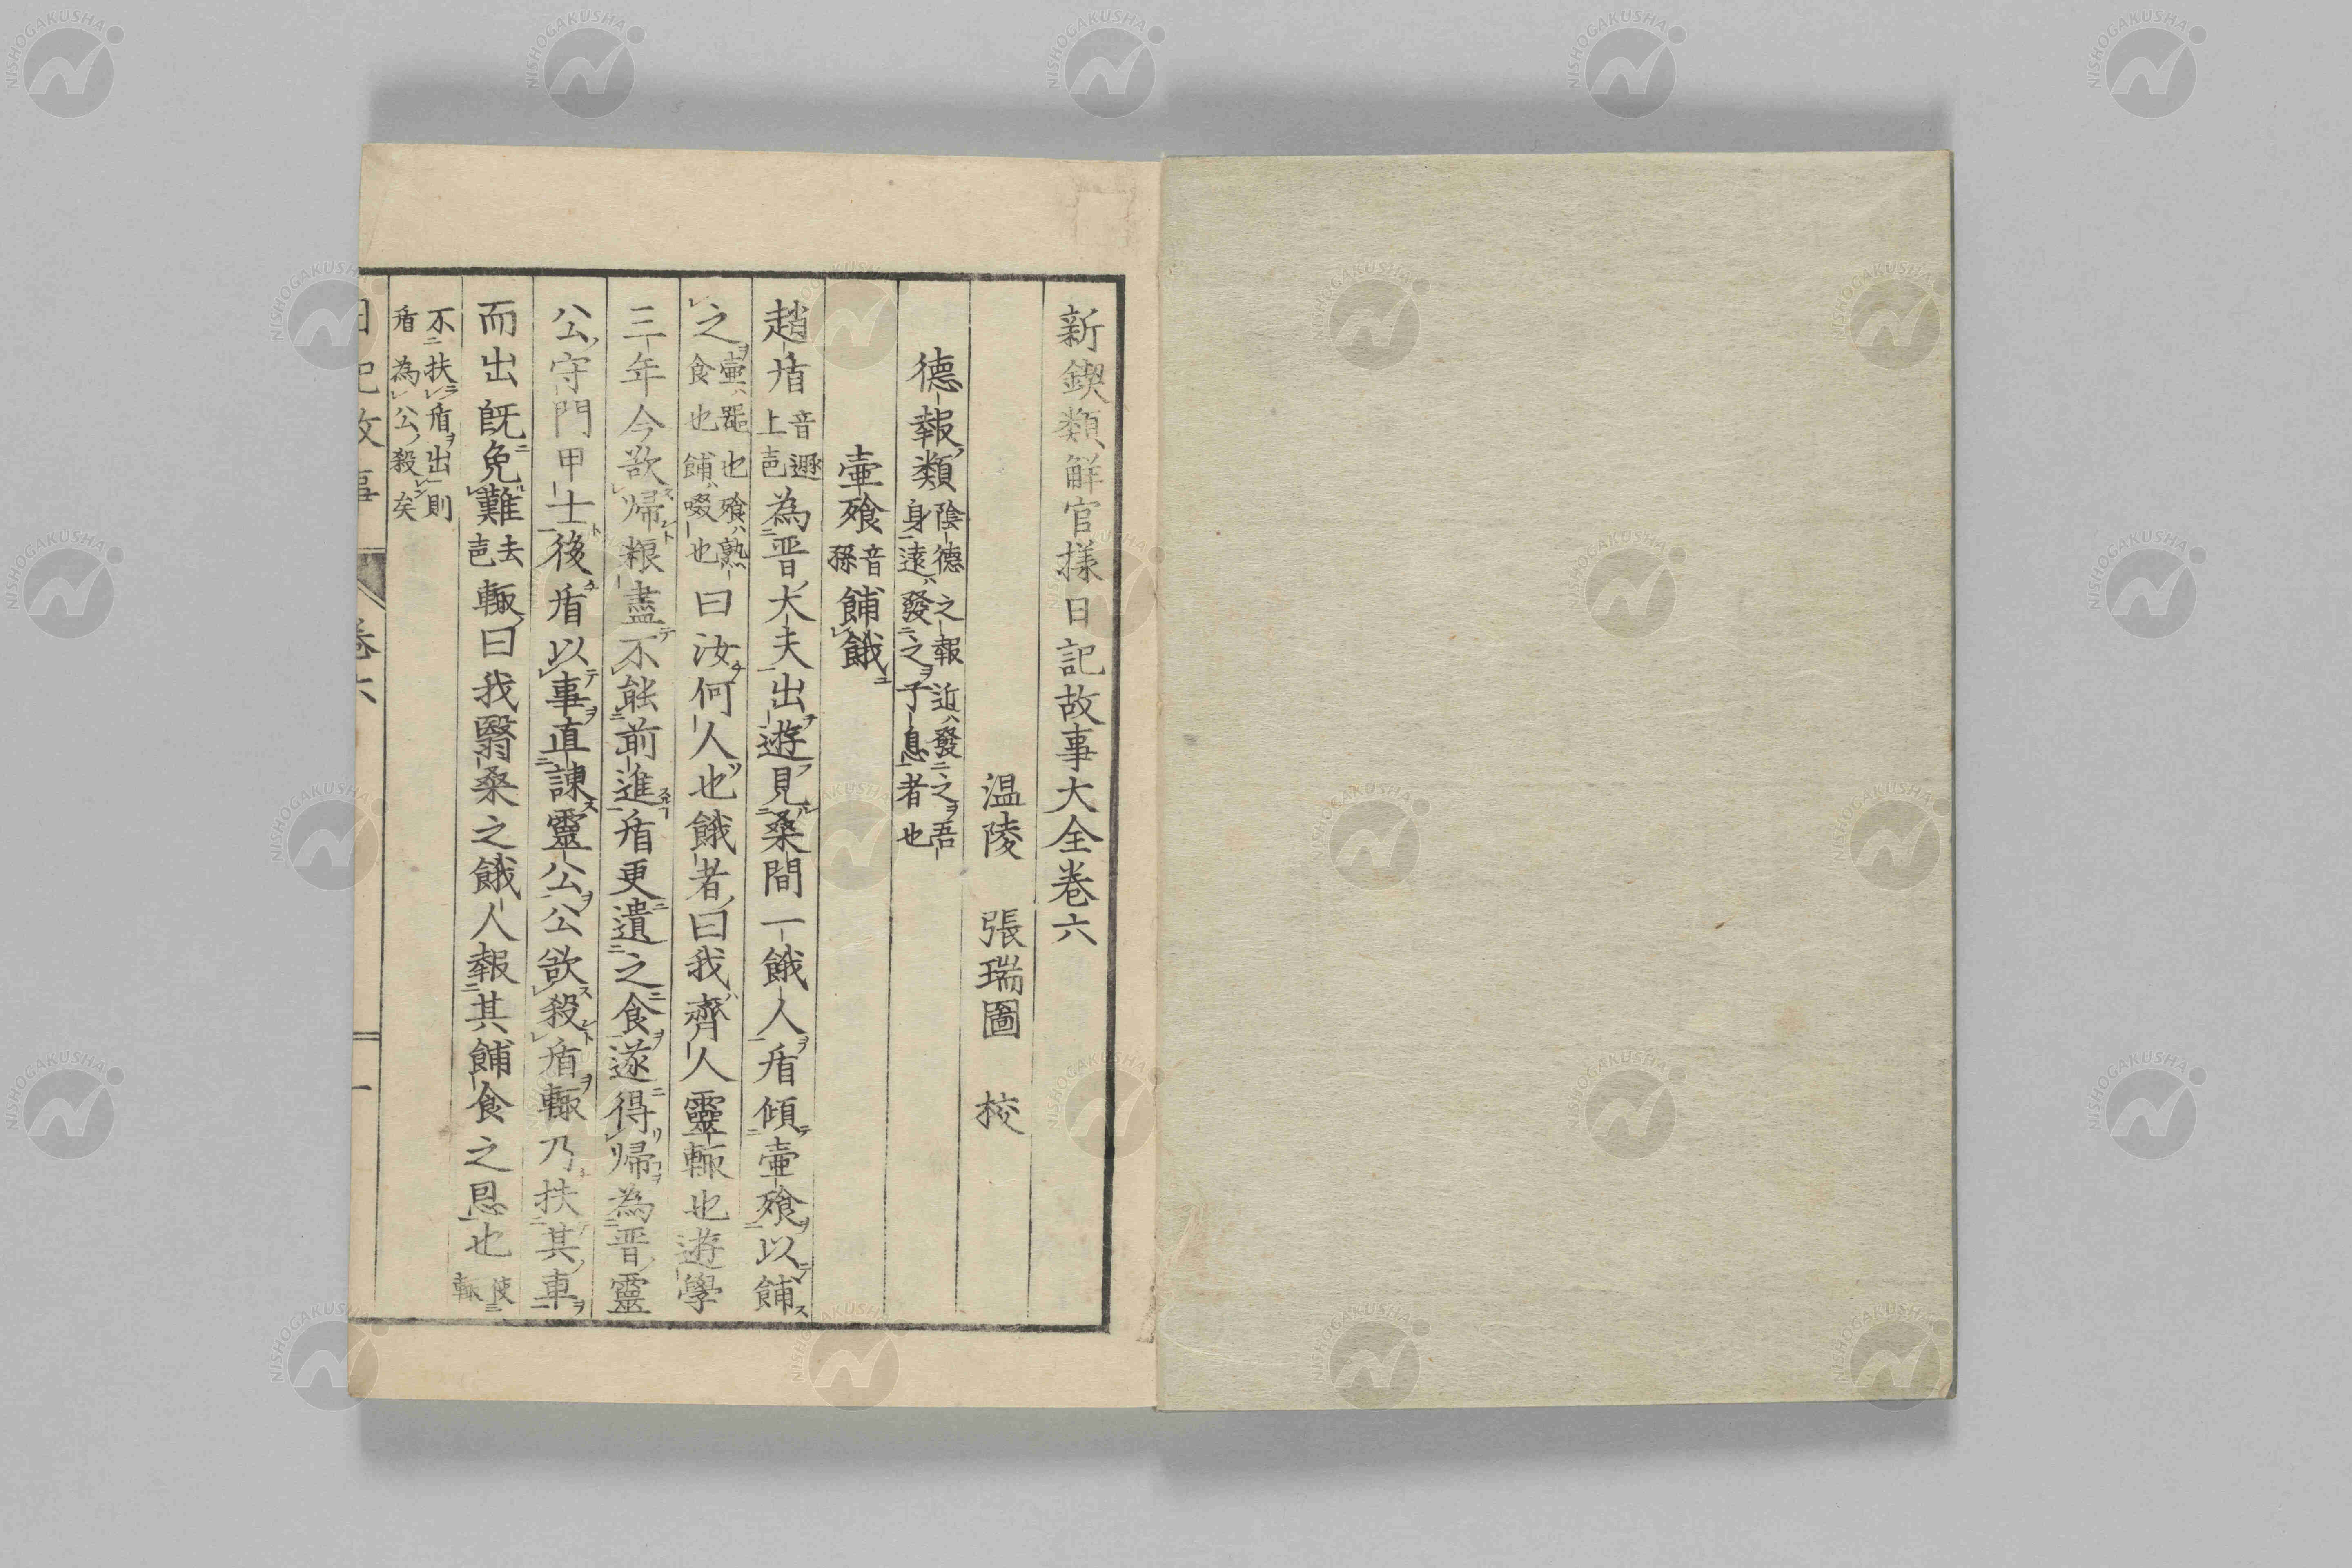 新鍥類解官樣日記故事大全卷六
温陵 張瑞圖 校
德報類 陰德之報近ハ發ニ之ヲ吾身一遠ハ發ニ之ヲ子息一者也
壷飱 音孫 餔餓
趙盾 音遯上声 為晋大夫出遊見桑間一餓人盾傾壷飱以餔
之 壷ハ噐也飱ハ熟食也餔ハ啜也 曰汝何人也餓者曰我齊人靈輙也遊學
三年今欲歸粮盡不能前進盾更遺之食遂得歸為晋靈
公守門甲士後盾以事直諌靈公公欲殺盾輙乃扶其車
而出旣免難 去声 輙曰我翳桑之餓人報其餔食之恩也 使輙
不扶盾出則盾為公殺矣
日記故事 卷六 一
NISHOGAKUSHA